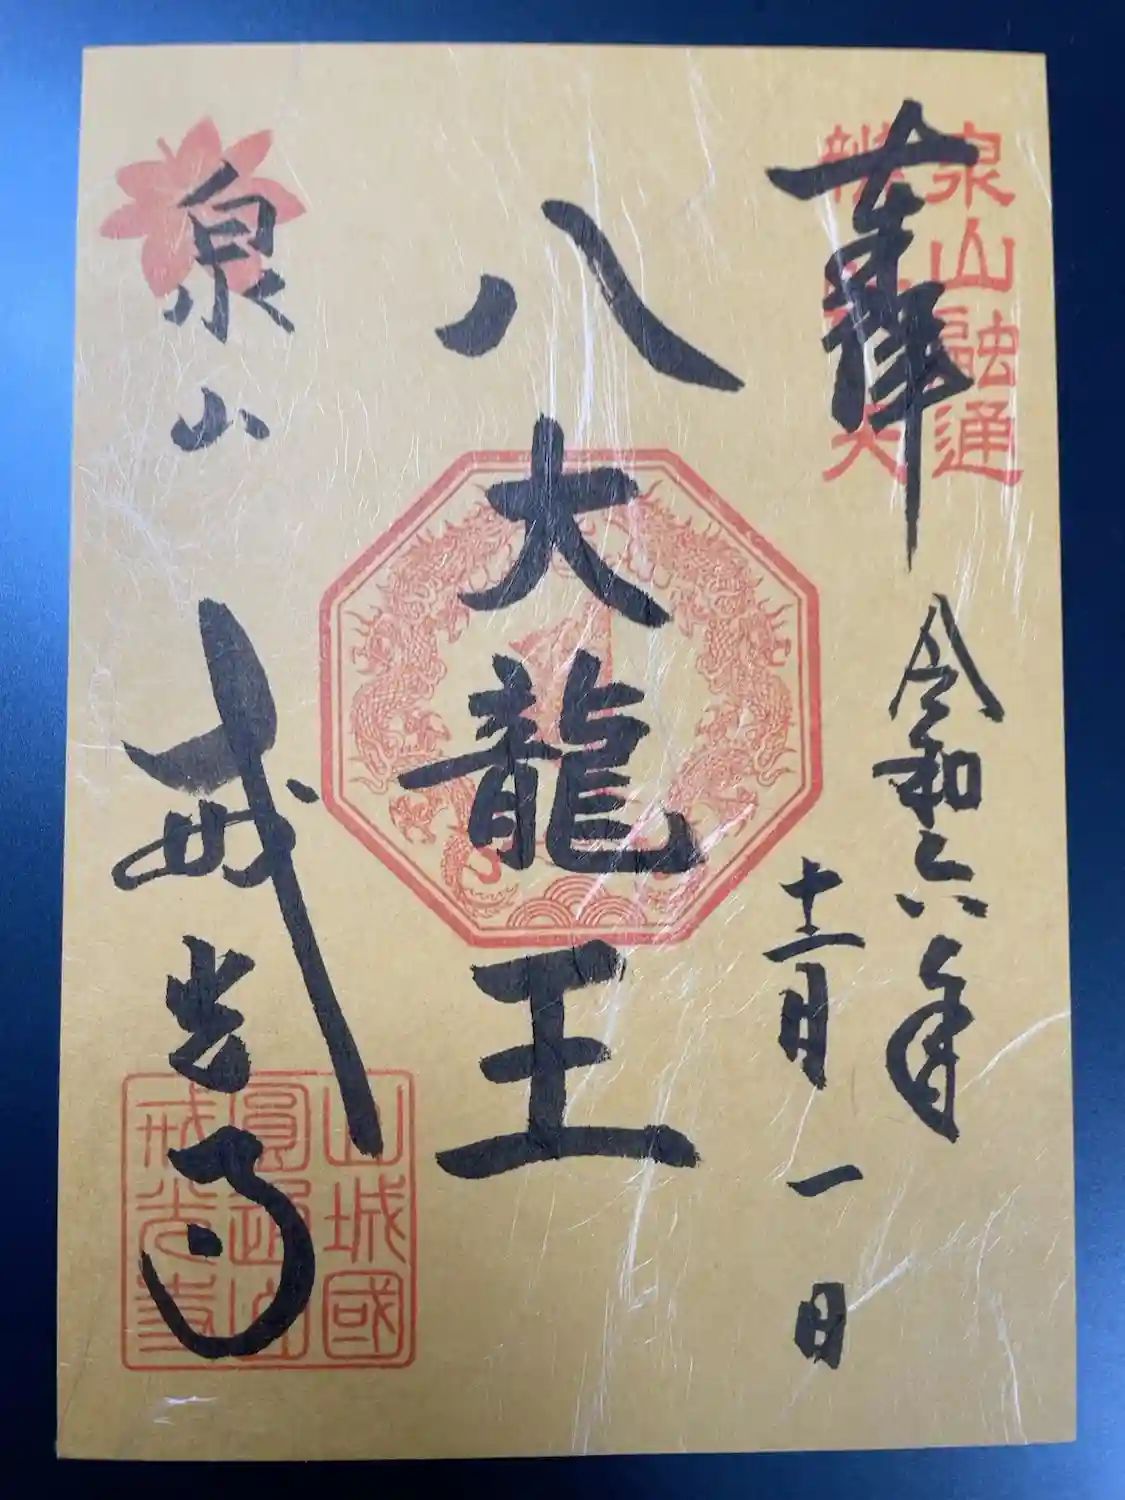 泉山融通
辨財天
奉拝
令和六年
十二月一日
八大龍王
泉山
戒光寺
山城國
圓通山
戒光寺